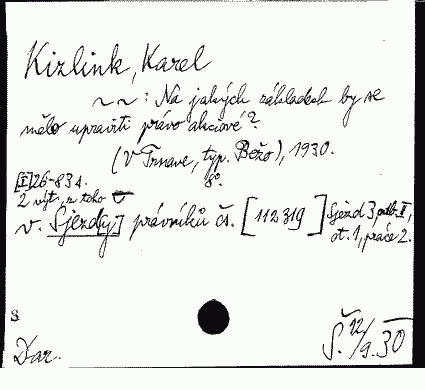 Kizlink, Karel
~ ~ : Na jakých základech by se
mělo upraviti právo akciové?
(V Trnave, typ. Bežo), 1930.
[I]26-834. 8°.
2 výt., z toho
v. Sjezd[y] právníků čs. [112319] Sjezd 3, odb. II,
ot. 1, práce 2.
S
Dar. Š. 12/9.30